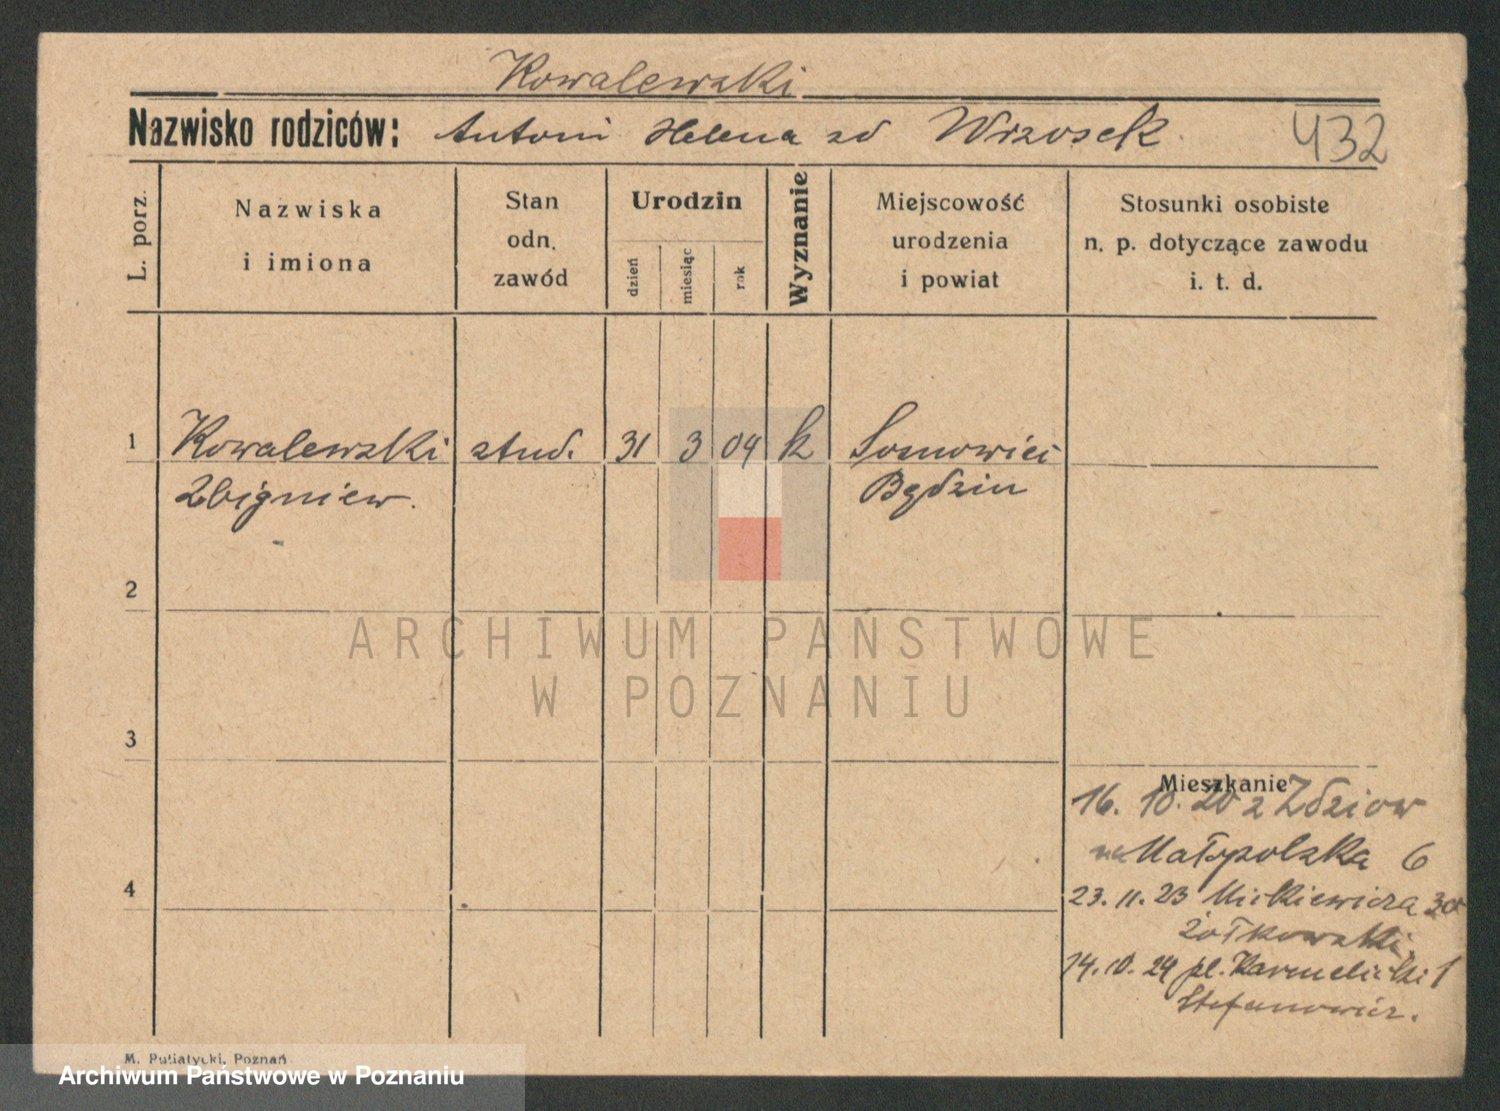 Kowalewski
Nazwisko rodziców: Antoni Helena zd Wrzosek 432
L. porz.
Nazwiska
i imiona
Stan
odn.
zawód
Urodzin
dzień
miesiąc
rok
Wyznanie
Miejscowość
urodzenia
i powiat
Stosunki osobiste
n. p. dotyczące zawodu
i. t. d.
1 Kowalewski stud. 31 3 04 k Sosnowiec
Zbigniew. Będzin
2
3
4
Mieszkanie
16. 10. 20 z
na Małopolska 6
23. 11. 23 Mickiewicza 30
Żółkowski
14. 10. 24 pl. Karmelicki 1
Stefanowicz.
M. Putiatycki, Poznań
ARCHIWUM PAŃSTWOWE
W POZNANIU
Archiwum Państwowe w Poznaniu